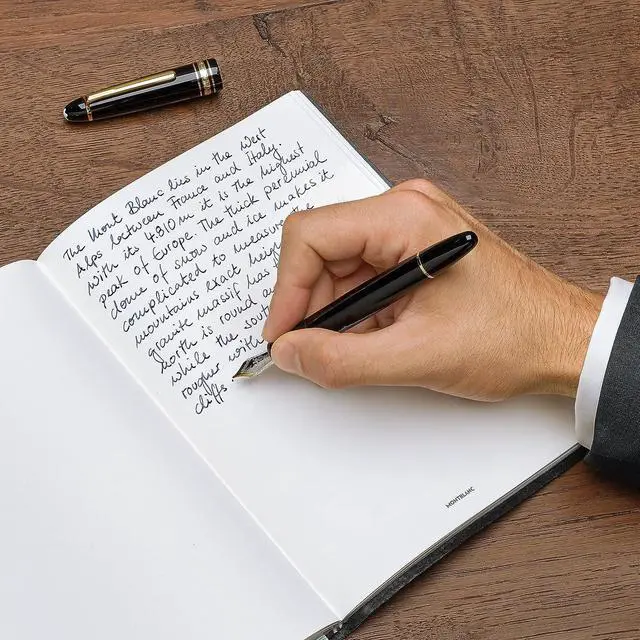 The Mont Blanc lies in the West
Alps between France and Italy.
With its 4.810 m it is the highest
peak of Europe. The thick perennial
dome of snow and ice makes it
complicated to measure the
mountains exact heig
granite massif has
north is round a
while the sout
rougher with
cliffs
MONTBLANC